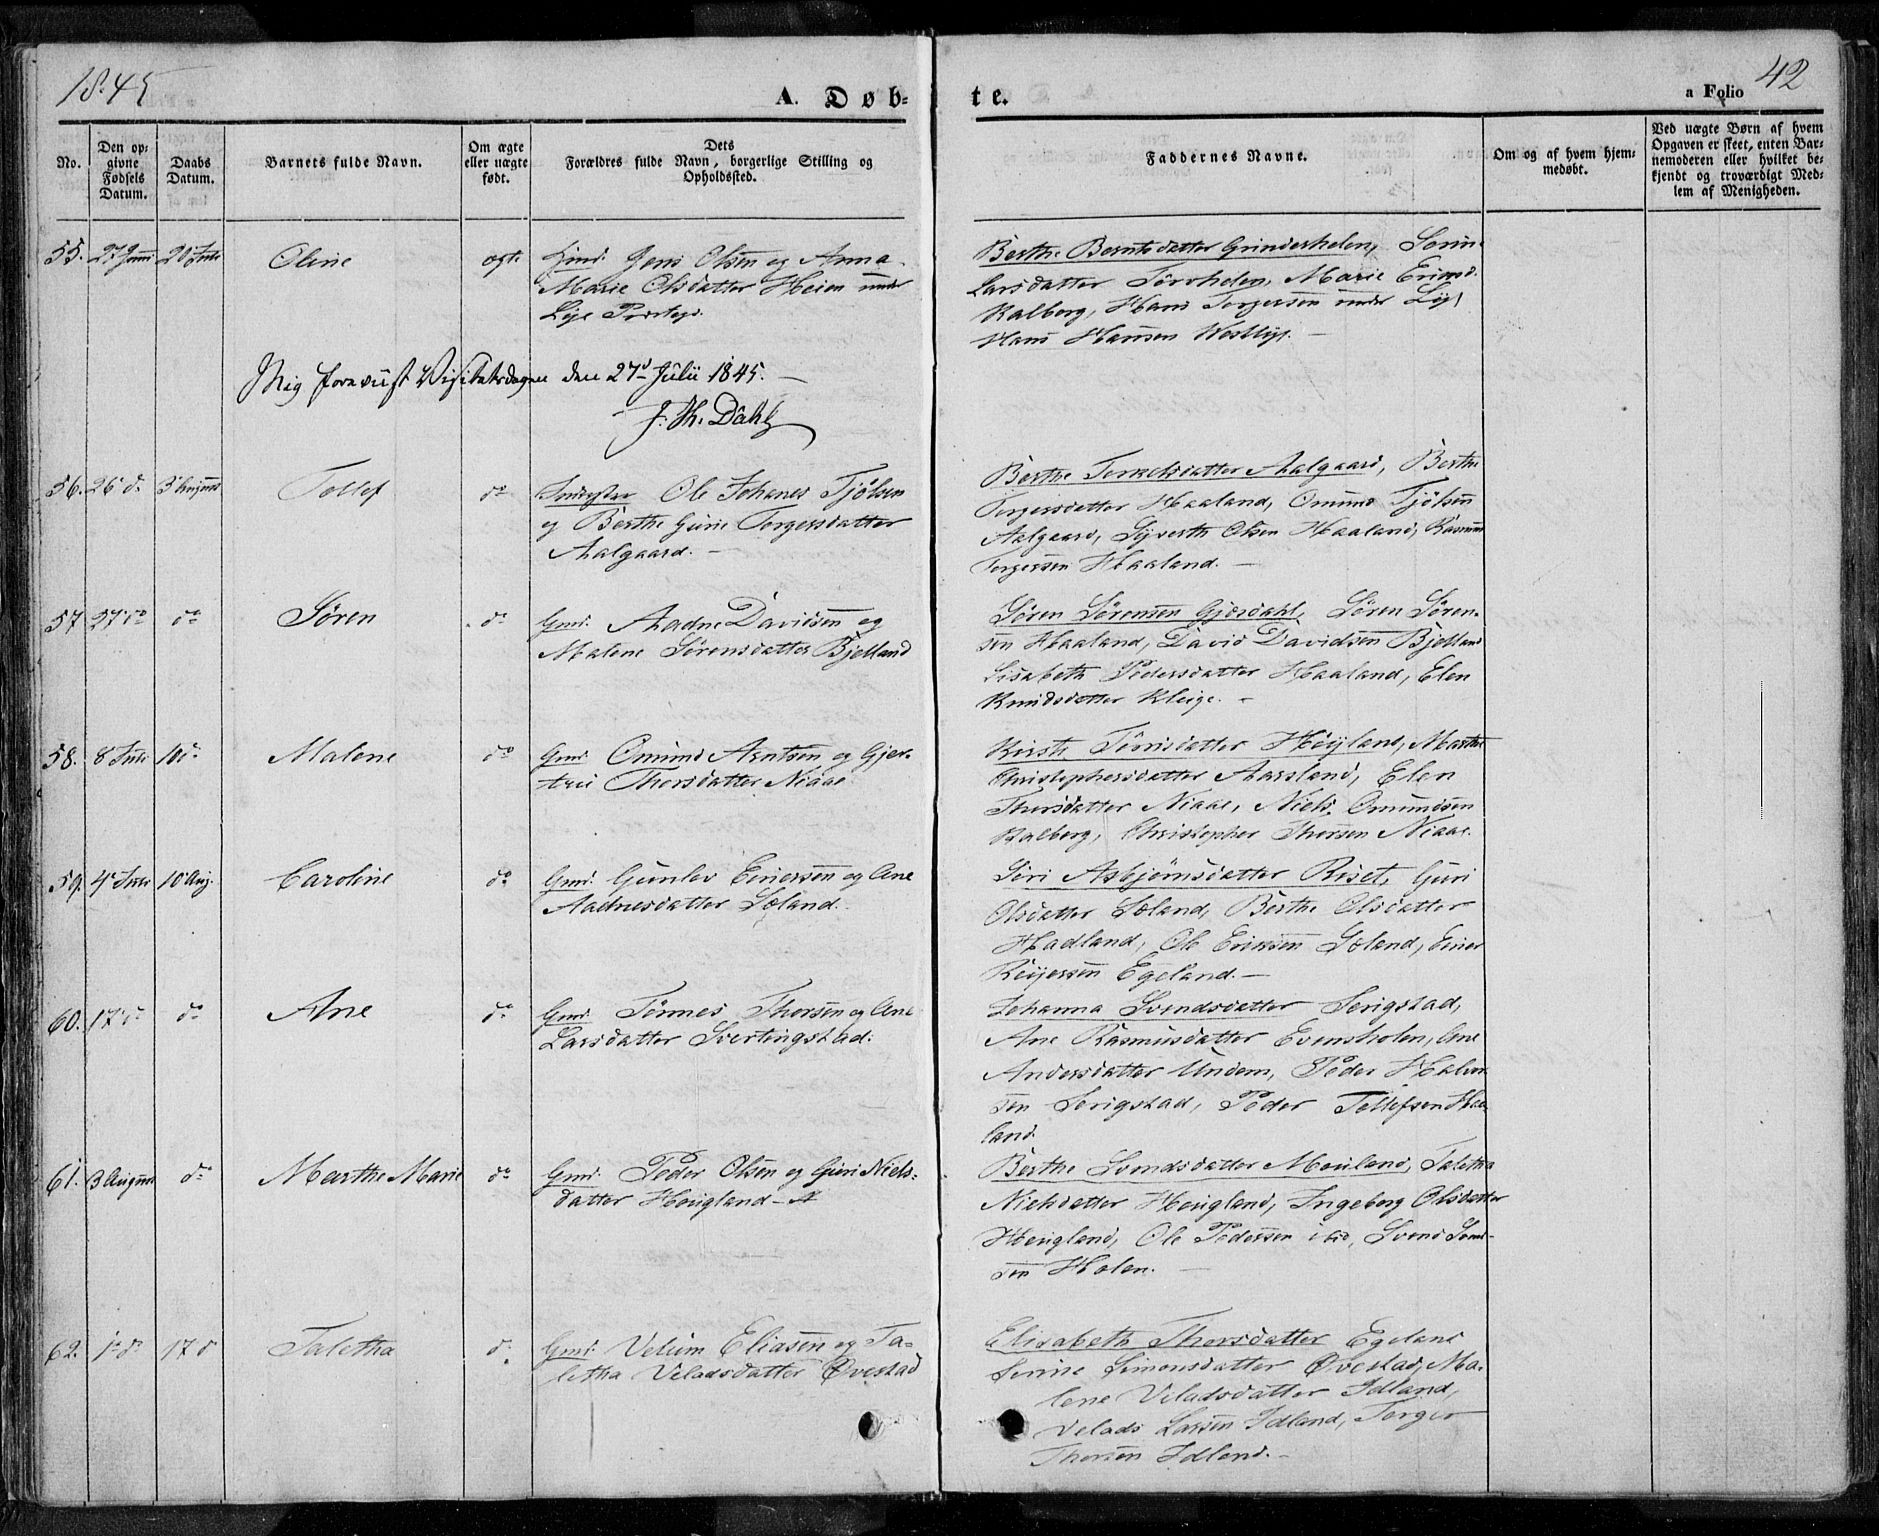 1845
A. Døb-
te.
a Folio
42
No.
Den op-
givne
Fødsels
Datum.
Daabs
Datum.
Barnets fulde Navn.
Om ægte
eller uægte
født.
Dets
Forældres fulde Navn, borgerlige Stilling og
Opholdssted.
Faddernes Navne.
Om og af hvem hjem-
medøbt.
Ved uægte Børn af hvem
Opgaven er skeet, enten Bar-
nemoderen eller hvilket be-
kjendt og troværdigt Med-
lem af Menigheden.
55. 27 Juni 20 Juli Oline ægte Huusd. Jens Olsen og Anna
Marie Olsdatter Heien under
Lye Præstegd.
Berthe Berntsdatter Grinderhelen,
Larsdatter Torrhelen, Marie
Kalberg, Hans Torgersen under Lye,
Hans Hansen Westlye. —
Mig foreviist Visitatsdagen den 27d Julii 1845. —
J. Th. Dahl
56. 26 d. 3 August Tollef do Ole Johanes Tjølsen
og Berthe Gurie Torgersdatter
Aalgaard. —
Berthe Torkelsdatter Aalgaard, Berthe
Torgersdatter Haaland, Omund Tjølsen
Aalgaard, Syverth Olsen Haaland, Rasmus
Torgersen Haaland. —
57 27 do do Søren do Gmd. Aadne Davidsen og
Malene Sørensdatter Bjelland
Søren Sørensen Gjesdahl, Søren Søren-
sen Haaland, David Davidsen Bjelland
Lisabeth Pedersdatter Haaland, Elen
Knudsdatter Kleige. —
58. 8 Juli 10 d. Malene do Gmd. Omund Arntsen og Gjer-
trud Thorsdatter Niaae
Tønnisdatter Høyland, Marthe
Christophersdatter Aarsland, Elen
Thorsdatter Niaae, Niels Omundsen
Kalberg, Christopher Thorsen Niaae.
59. 4 Juli 10 Aug. Caroline do Gmd. Gunlev Einersen og Ane
Aadnesdatter Soland.
Siri Asbjørnsdatter Riset, Guri
Olsdatter Soland, Berthe Olsdatter
Hadland, Ole Eriksen Soland, Einer
Reijersen Egeland. —
60. 17 d. do Ane do Gmd. Tønnes Thorsen og Ane
Larsdatter Svertingstad.
Johanna Svendsdatter Serigstad,
Ane Rasmusdatter Evensholen, Ane
Andersdatter Undem, Peder Halvor-
sen Serigstad, Peder Tollefsen Haa-
land.
61. 3 August do Marthe Marie do Gmd. Peder Olsen og Guri Niels-
datter Høigland
Berthe Svendsdatter Mouland, Taletha
Nielsdatter Høigland, Ingeborg Olsdatter
Høigland, Ole Pedersen ibid, Svend Svend-
sen Holen. —
62. 1 d. 17 d Taletha d. Gmd. Velum Eliasen og Ta-
letha Veladsdatter Øvestad
Elisabeth Thorsdatter Egeland
Serine Simonsdatter Øvestad, Ma-
lene Veladsdatter Idland,
Velads Larsen Idland, Torger
Thorsen Idland. —